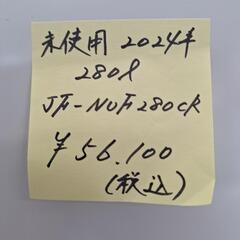 未使用 2024年
280ℓ
JF-NUF280CR
¥56.100
(税込)